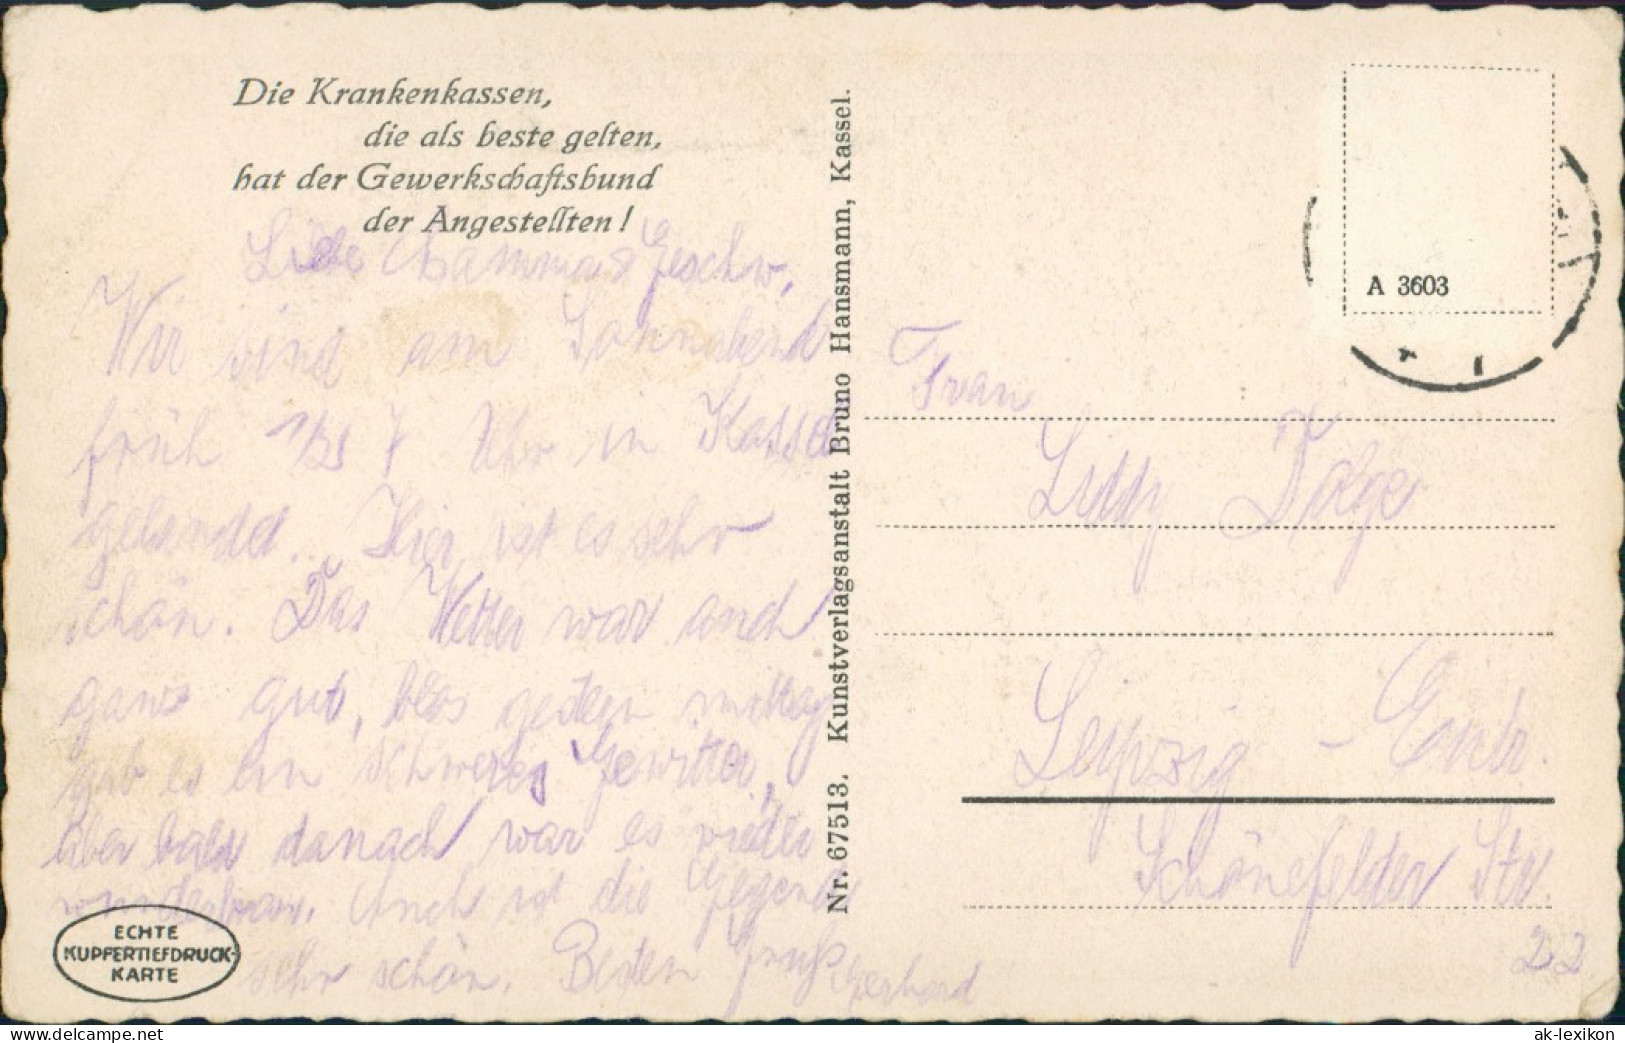 Die Krankenkassen,
die als beste gelten,
hat der Gewerkschaftsbund
der Angestellten!
Liebe Geschw.,
Wir sind am Sonnabend
früh 7 Uhr in Kassel
gelandet. Hier ist es sehr
schön. Das Wetter war auch
ganz gut, blos gestern mittag
gab es ein schweres Gewitter,
aber bald danach war es wieder
wunderbar. Auch ist die Gegend
sehr schön. Besten Gruß Gerhard
ECHTE
KUPFERTIEFDRUCK-
KARTE
Nr. 67513. Kunstverlagsanstalt Bruno Hansmann, Kassel.
A 3603
Frau
Liddy
Leipzig - Eutr.
Schönefelder Str.
22
www.delcampe.net
ak-lexikon